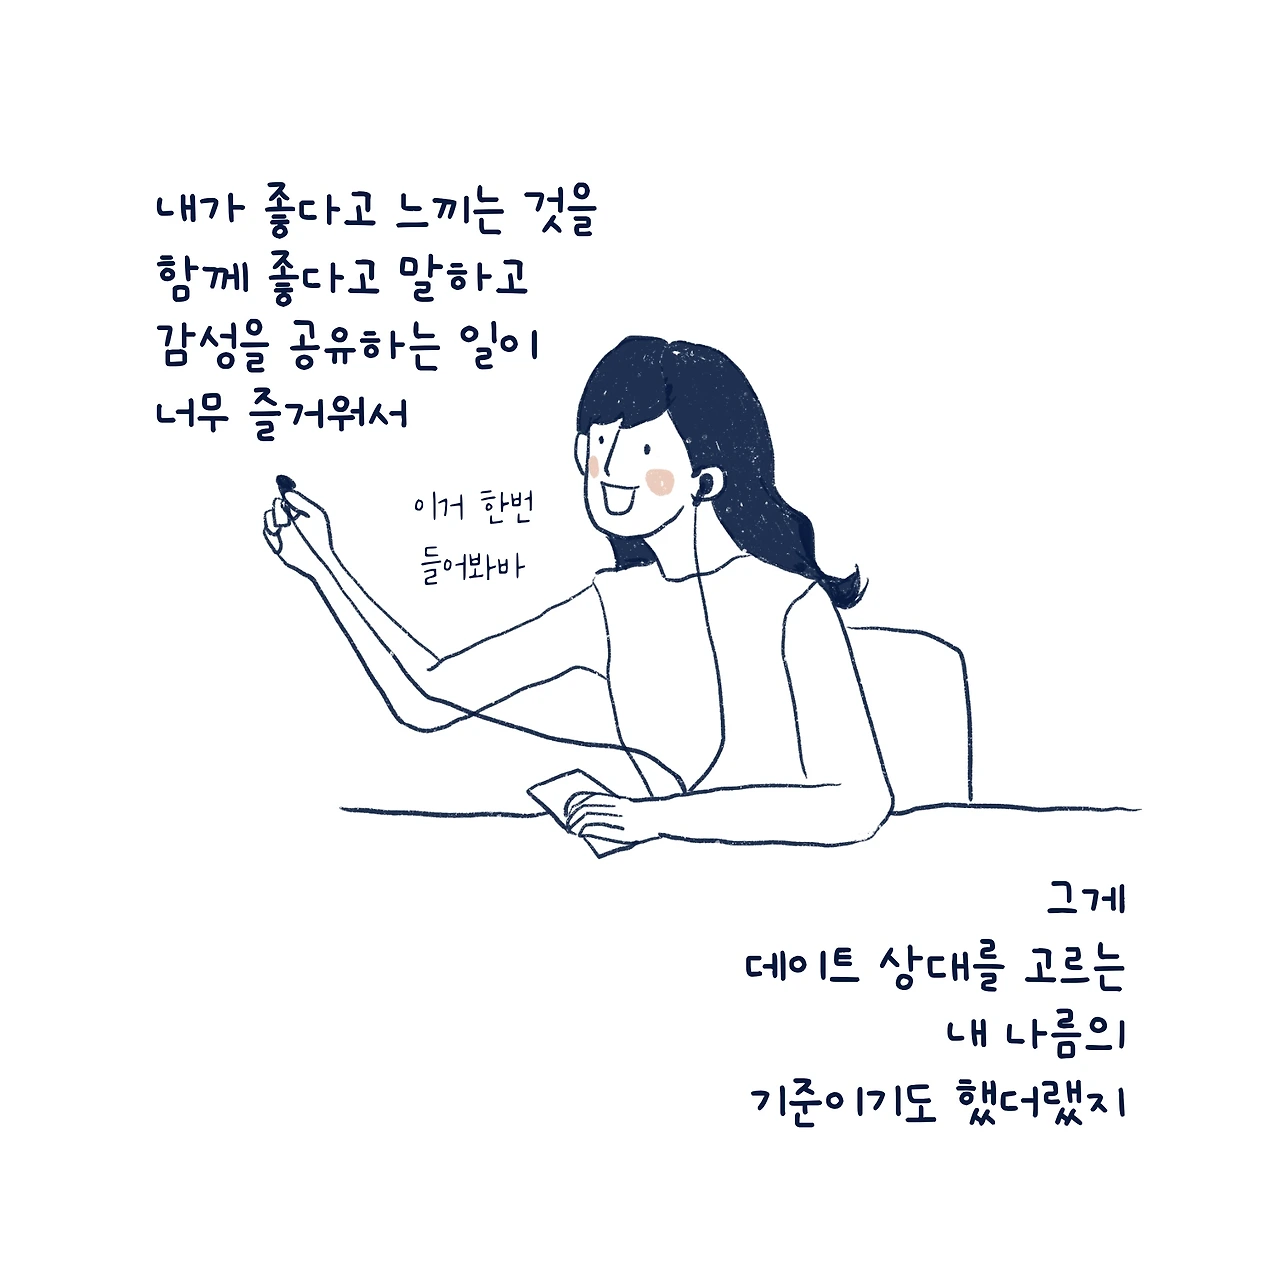 내가 좋다고 느끼는 것을
함께 좋다고 말하고
감성을 공유하는 일이
너무 즐거워서
이거 한번
들어봐바
그게
데이트 상대를 고르는
내 나름의
기준이기도 했더랬지